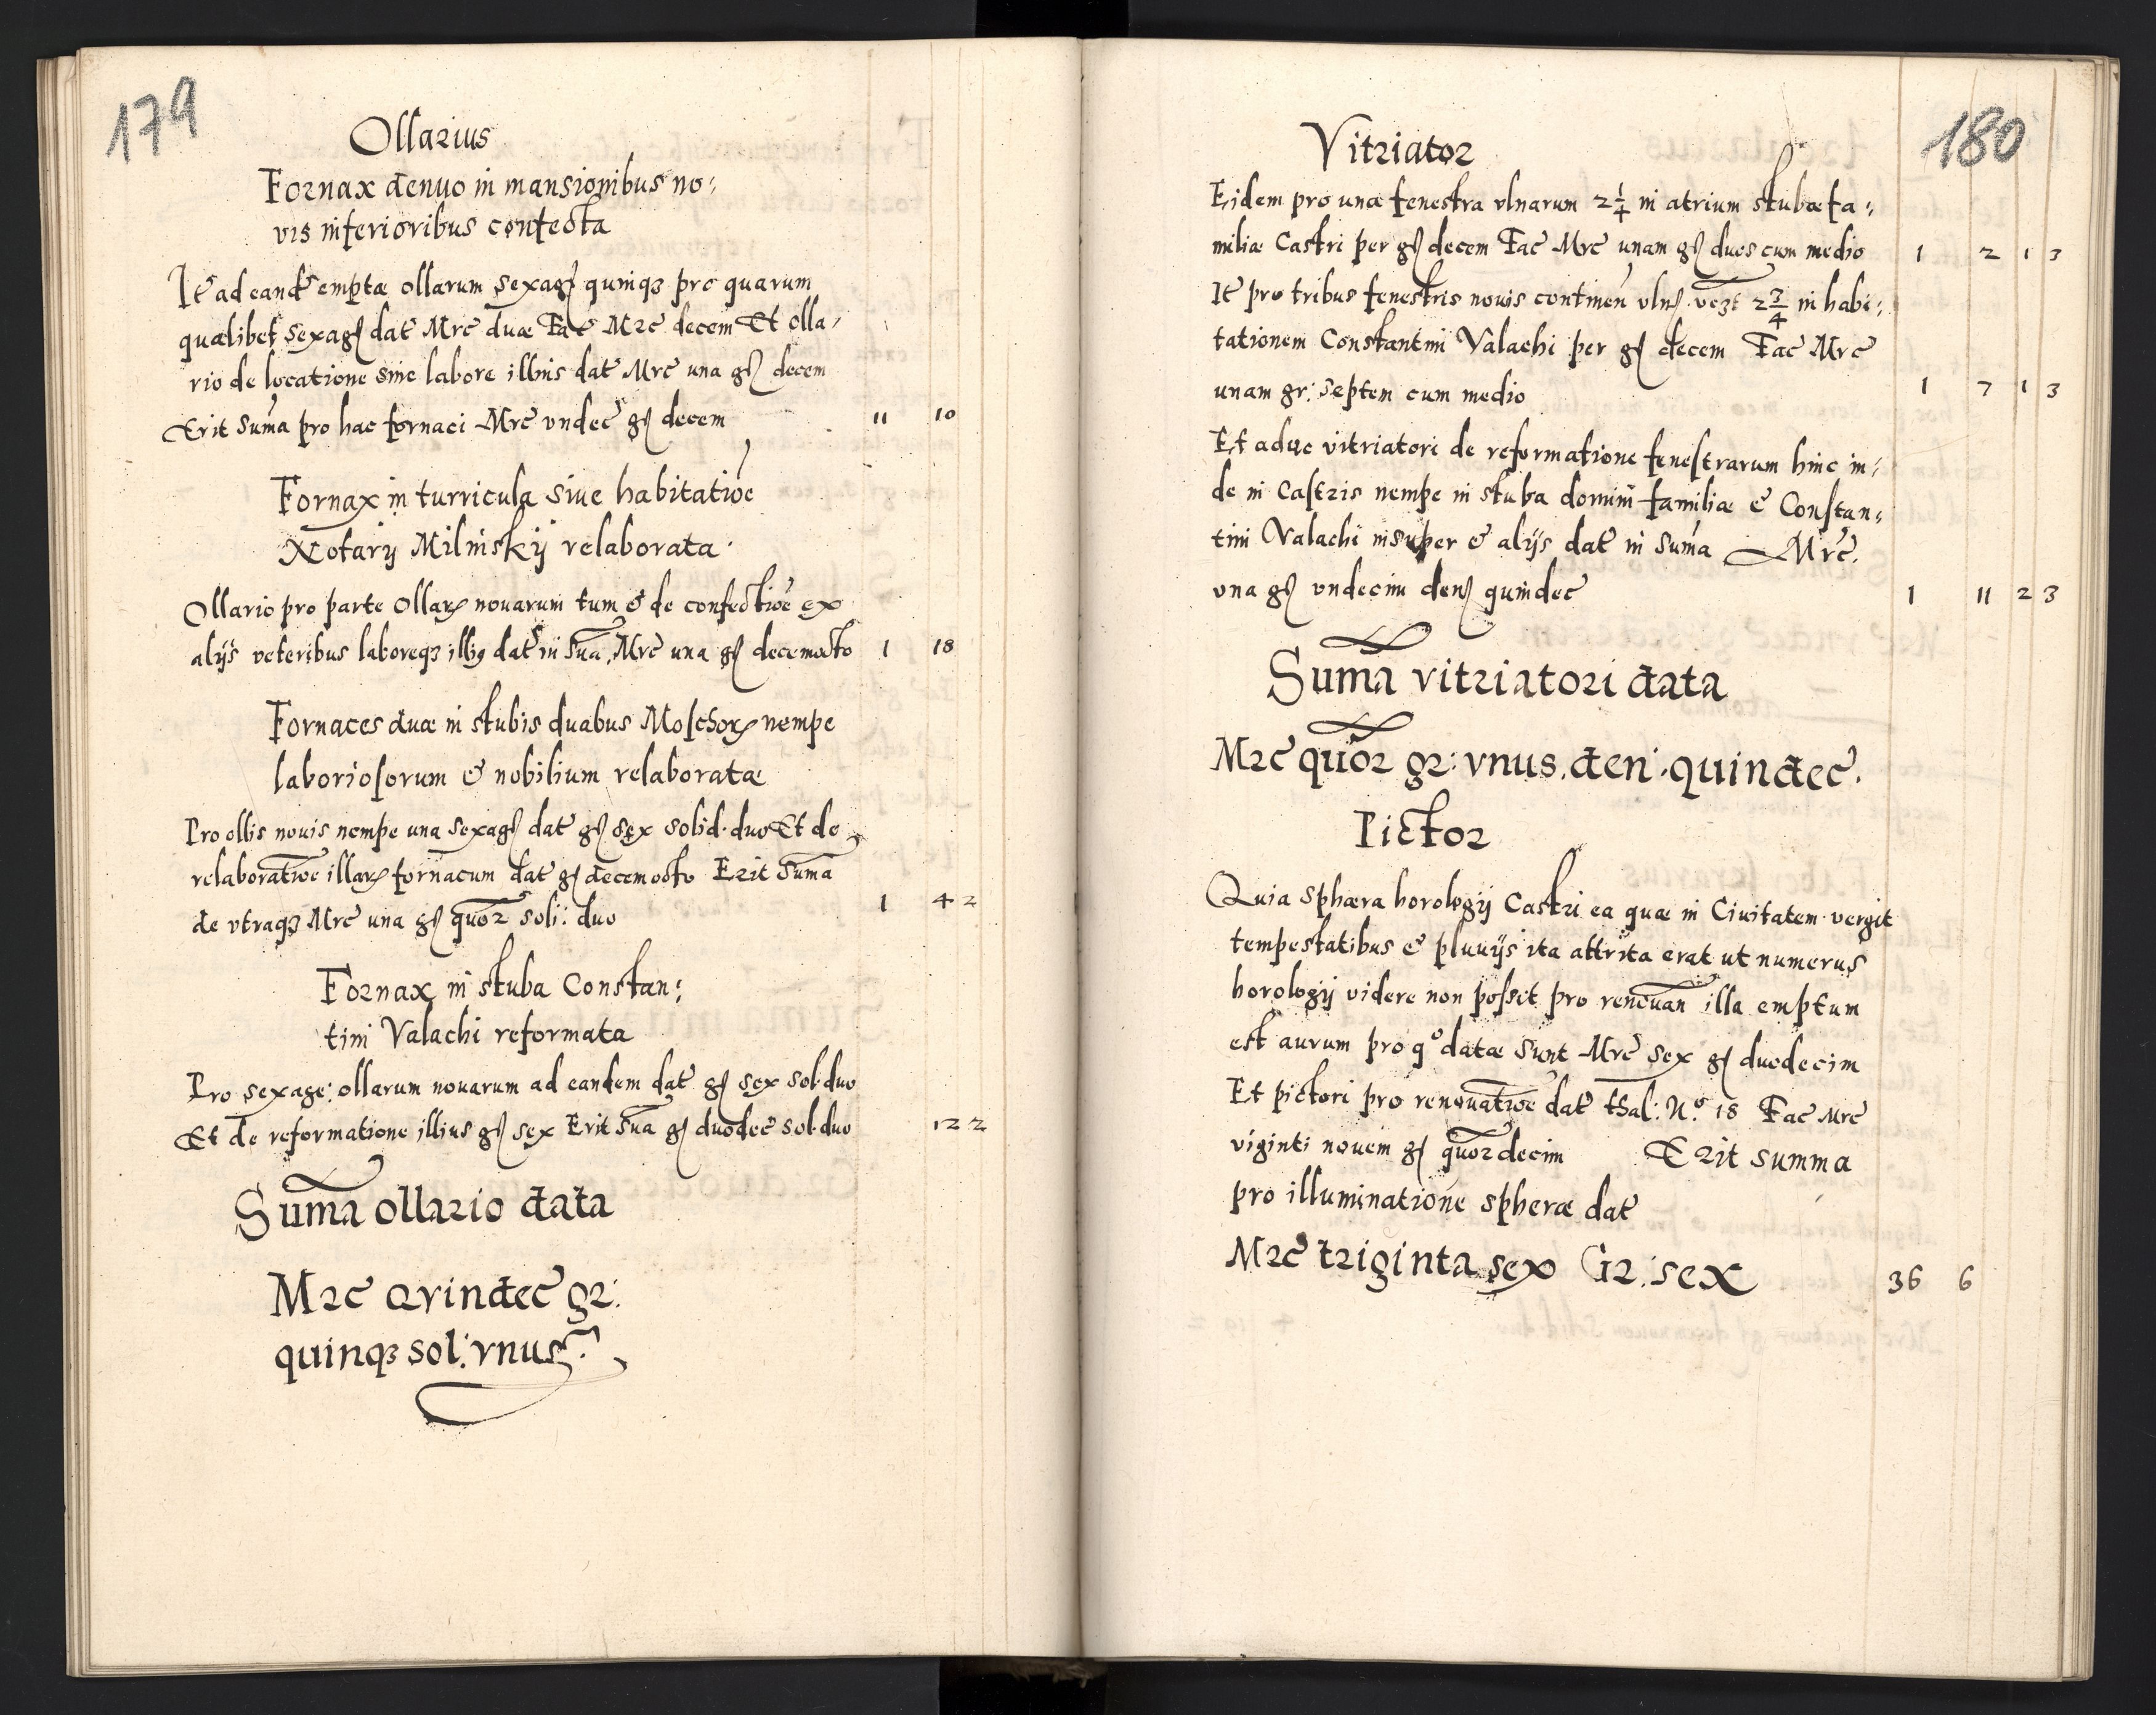 179
Ollarius
Fornax denuo in mansionibus no:
vis inferioribus confecta
It ad eand emptæ ollarum sexag quinqꝫ pro quarum
quælibet sexag dat Mrc duæ Fac Mrc decem Et olla/
rio de locatione sive labore illius dat Mrc una g decem
Erit Suma pro hac fornaci Mrc undec g decem 11 10
Fornax in turricula sive habitatioe
Notarij Milinskij relaborata
Ollario pro parte Ollarꝝ novarum tum & de confectioe ex
alijs veteribus laboreqꝫ illiꝰ dat in Sua Mrc una g decemocto 1 18
Fornaces duæ in stubis duabus Moschorꝝ nempe
laboriosorum & nobilium relaboratæ
Pro ollis novis nempe una sexag dat g sex solid. duo Et de
relaboratioe illarꝝ fornacum dat g decemocto Erit Suma
de utraqꝫ Mrc una g quor soli: duo 1 4 2
Fornax in stuba Constan:
tini Valachi reformata
Pro sexage: ollarum novarum ad eandem dat g sex sol. duo
Et de reformatione illius g sex Erit Sua g duodec sol. duo 12 2
Suma ollario data
Mrc Qvindec gr:
quinqꝫ sol: vnus
180
Vitriator
Eidem pro una fenestra vlnarum 2 1/4 in atrium stubæ fa:
miliæ Castri per g decem Fac Mrc unam g duos cum medio 1 2 1 3
It pro tribus fenestris novis continen vln 2 3/4 in habi:
tationem Constantini Valachi per g decem Fac Mrc
unam gr: septem cum medio 1 7 1 3
Et aduc vitriatori de reformatione fenestrarum hinc in:
de in Castris nempe in stuba familiæ & Constan:
tini Valachi insuper & alijs dat in Suma Mrc.
vna g vndecim den quindec 1 11 2 3
Suma vitriatori data
Mrc quor gr: vnus. den: quindec.
Pictor
Quia Sphæra horologij Castri ea quæ in Civitatem vergit
tempestatibus & pluvijs ita attrita erat ut numerus
horologij videre non possit pro renovan illa emptum
est aurum pro qº datæ Sunt Mrc sex g duodecim
Et pictori pro renovatioe dat thal: Nº. 18 Fac Mrc
viginti novem g quordecim Erit summa
pro illuminatione spheræ dat
Mrc triginta sex Gr. sex 36 6